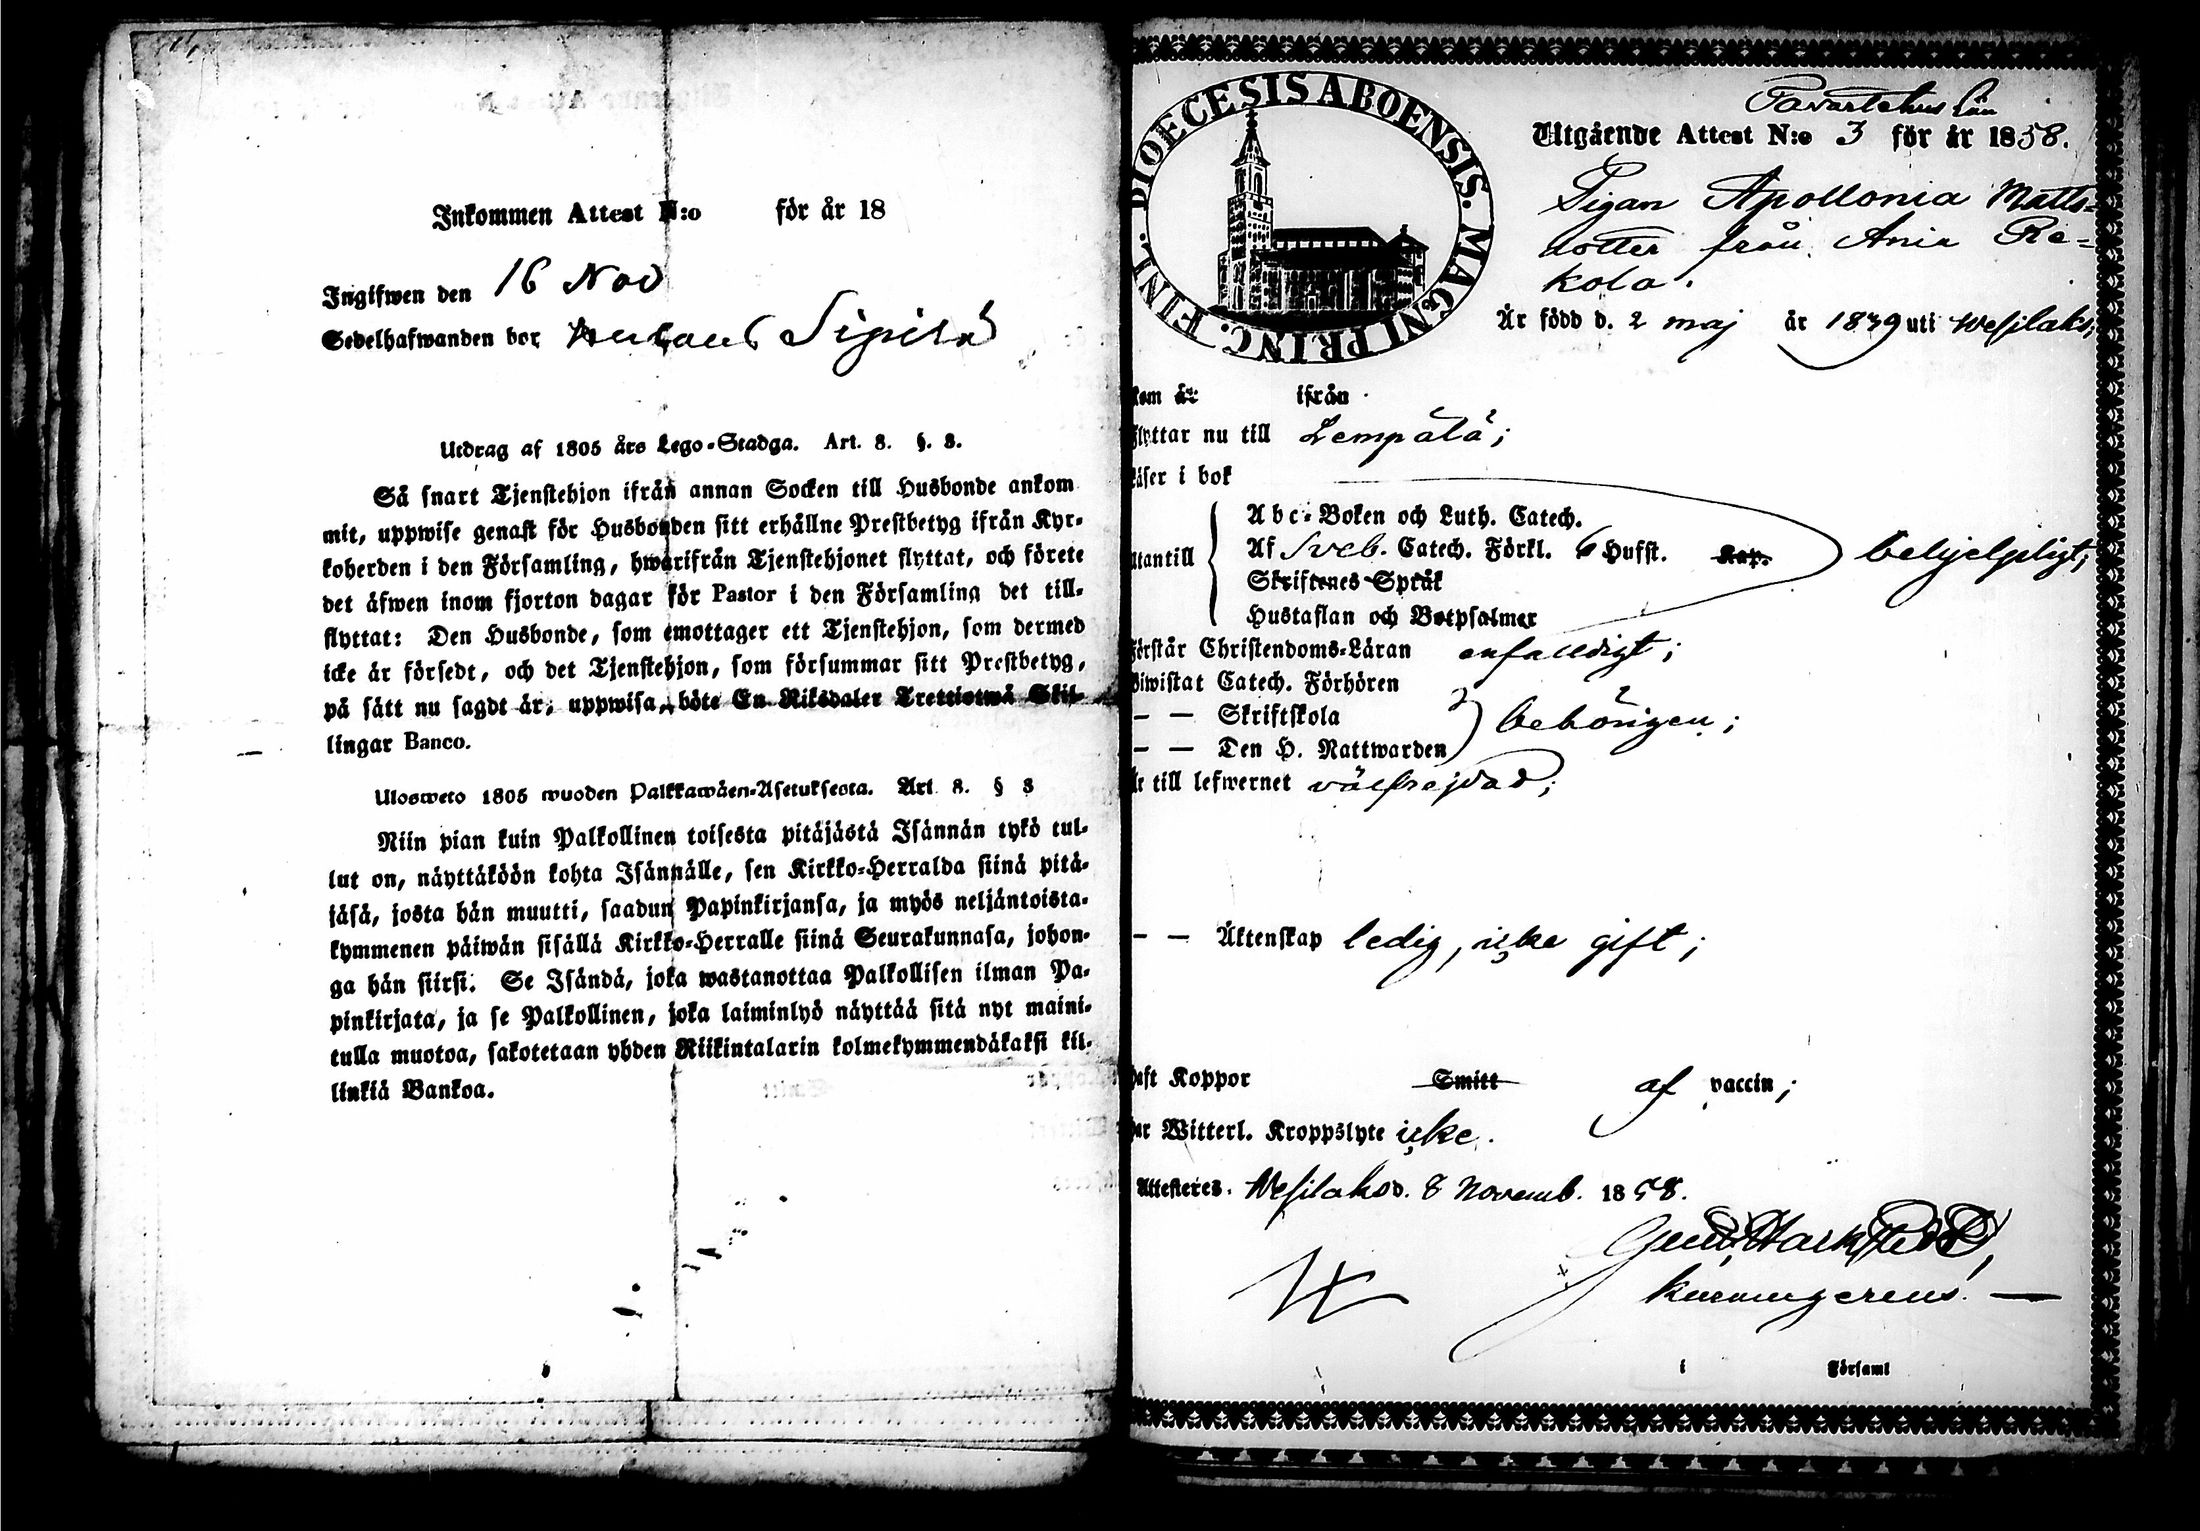 Inkommen Attest N:o för år 18
Ingifwen den 16 Nov
Sedelhafwanden bor Sipilä
Utdrag af 1805 års Lego-Stadga. Art. 8. §. 3.
Så snart Tjenstehjon ifrån annan Socken till Husbonde ankom
mit, uppwise genast för Husbonden sitt erhållne Prestbetyg ifrån Kyr-
koherden i den Församling, hwarifrån Tjenstehjonet flyttat, och förete
det äfwen inom fjorton dagar för Pastor i den Församling det till-
flyttat: Den Husbonde, som emottager ett Tjenstehjon, som dermed
icke är försedt, och det Tjenstehjon, som försummar sitt Prestbetyg,
på sätt nu sagdt är, uppwisa, böte En Riksdaler Trettiotwå Skil-
lingar Banco.
Ulosweto 1805 wuoden Palkkawäen-Asetuksesta. Art 8. § 3
Niin pian kuin Palkollinen toisesta pitäjästä Isännän tykö tul-
lut on, näyttäköön kohta Isännälle, sen Kirkko-Herralda siinä pitä-
jäsä, josta hän muutti, saadun Papinkirjansa, ja myös neljäntoista-
kymmenen päiwän sisällä Kirkko-Herralle siinä Seurakunnasa, johon-
ga hän siirsi. Se Isändä, joka wastanottaa Palkollisen ilman Pa-
pinkirjata, ja se Palkollinen, joka laiminlyö näyttää sitä nyt maini-
tulla muotoa, sakotetaan yhden Riikintalarin kolmekymmendäkaksi kil-
linkiä Bankoa.
FINL. DIOECESIS ABOENSIS. MAGNI PRINC.
Tavastehus Län
Utgående Attest N:o 3 för år 1858.
Pigan Apollonia Matts-
dotter från Ania Re-
kola.
Är född d. 2 maj år 1839 uti Wesilaks,
kom år ifrån
flyttar nu till Lempälä;
Läser i bok
Abc-Boken och Luth. Catech.
utantill Af Sveb. Catech. Förkl. 6 Hufst. Kap. behjelpligt;
Skriftenes Språk
Hustaflan och Botpsalmer
Förstår Christendoms-Läran enfaldigt;
Biwistat Catech. Förhören
— — Skriftskola behörigen;
— — Den H. Nattwarden
Är till lefwernet välfrejdad;
— — Äktenskap ledig, icke gift;
Haft Koppor Smitt af vaccin;
Har Witterl. Kroppslyte icke.
Attesteres. Wesilaks d. 8 Novemb. 1858.
i Församl